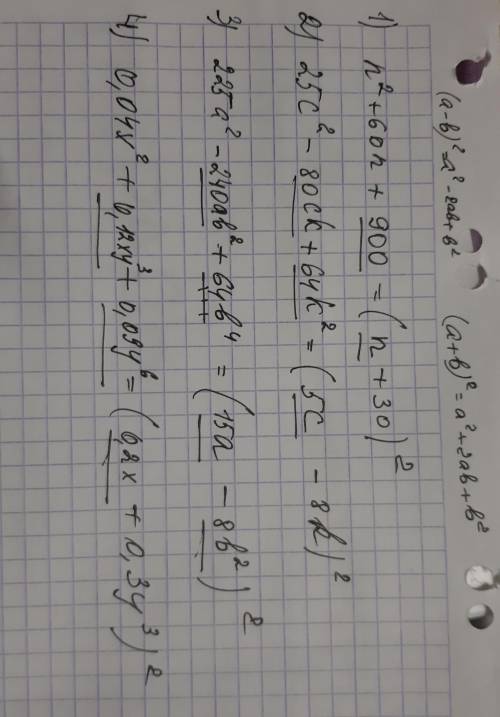 (a-b)²=a²-2ab+b² (a+b)²=a²+2ab+b²
1) n²+60n+900=(n+30)²
2) 25c²-80ck+64k²=(5c-8k)²
3) 225a²-240ab²+64b⁴=(15a-8b²)²
4) 0,04x²+0,12xy³+0,09y⁶=(0,2x+0,3y³)²